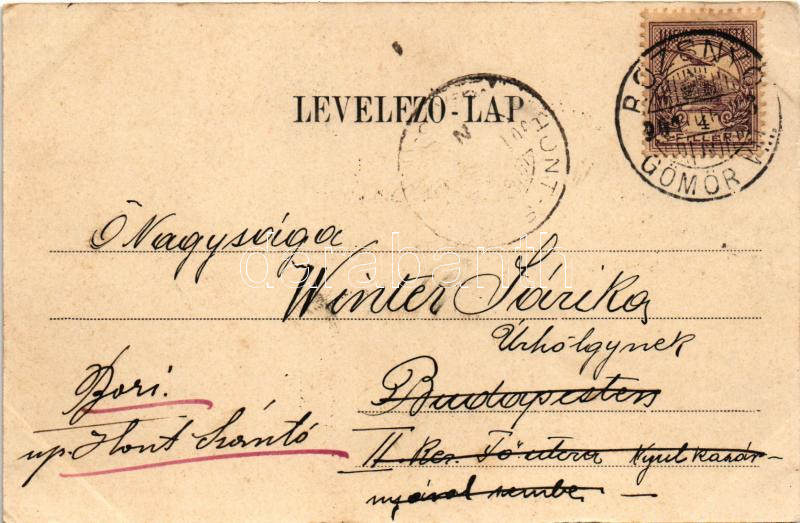 LEVELEZŐ-LAP
ROZSNYÓ
GÖMÖR V.
FILLÉR
4
HONT-S
Ő Nagysága
Winter Sárika
Úrhölgynek
Budapesten
II. Ker. Fő utca Nyul kaszár-
nyával szembe.
Bori.
up. Hont Szántó
darabanth